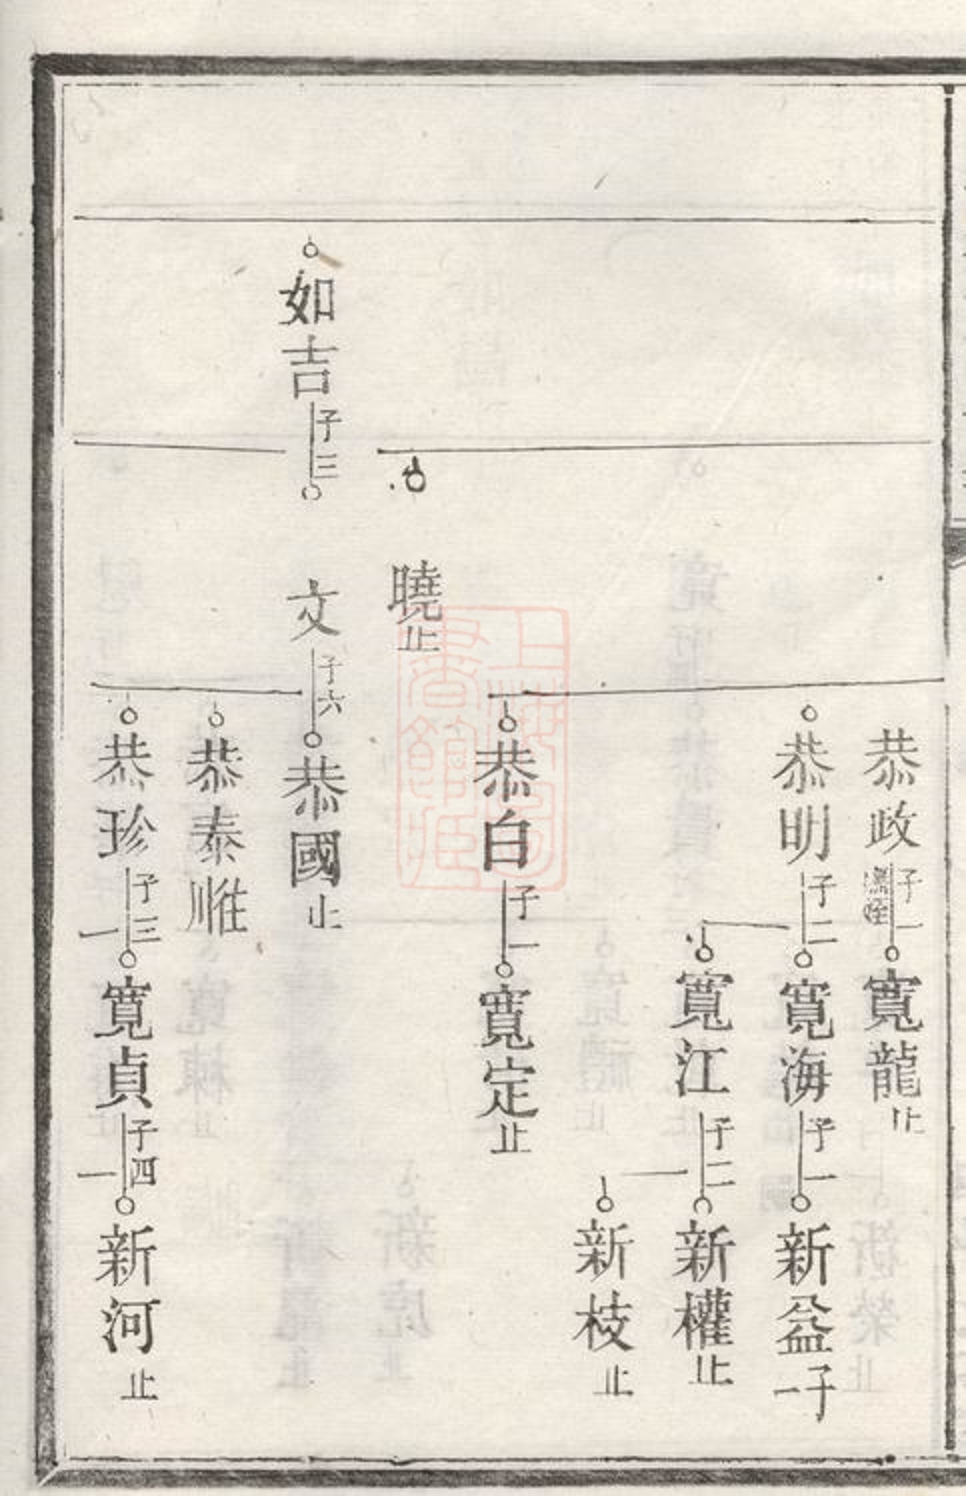 恭政子一
寬龍止
恭明子二
寬海子一
新益子一
寬江子二
新權止
新枝止
恭白子一
寬定止
曉止
如吉子三
文子六
恭國止
恭泰
恭珍子三
寬貞子四
新河止
上海圖書館藏